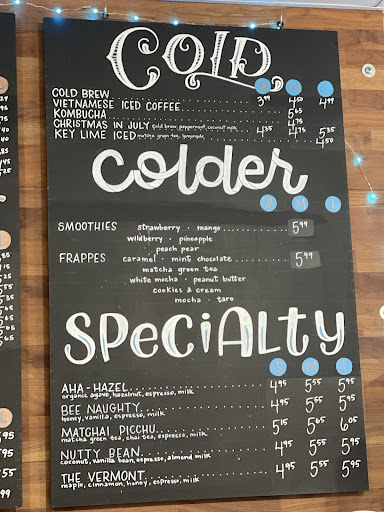 COLD
S M L
COLD BREW 3.99 4.50 4.99
VIETNAMESE ICED COFFEE
KOMBUCHA 5.65
CHRISTMAS IN JULY cold brew, peppermint, coconut milk 4.35 4.75 5.35
KEY LIME ICED matcha green tea, lemonade 4.75 4.50
Colder
S M L
SMOOTHIES strawberry · mango 5.99
wildberry · pineapple
peach pear
FRAPPES caramel · mint chocolate 5.99
matcha green tea
white mocha · peanut butter
cookies & cream
mocha · taro
SPeCiALty
S M L
AHA-HAZEL 4.95 5.55 5.95
organic agave, hazelnut, espresso, milk
BEE NAUGHTY 4.95 5.55 5.95
honey, vanilla, espresso, milk
MATCHAI PICCHU 5.15 5.65 6.05
matcha green tea, chai tea, espresso, milk
NUTTY BEAN 4.95 5.55 5.95
coconut, vanilla bean, espresso, almond milk
THE VERMONT 4.95 5.55 5.95
maple, cinnamon, honey, espresso, milk